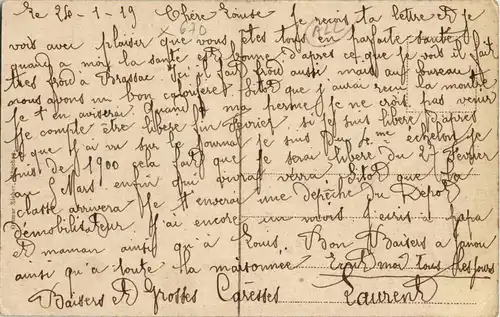 Le 26-1-19 Chère Louise Je reçois ta lettre et je
670 ALL
vois avec plaisir que vous êtes tous en parfaite santé
quand a moi la santé est bonne d'apres ce que je vois il fait
tres froid à Brassac ici il fait froid aussi mais au bureau
nous avons un bon calorifère sitot que j'aurai recu la montre
je t'en aviserai Quand a ma perme je ne crois pas venir
Je compte être libéré fin fevrier si je suis libéré d'apres
ce que j'ai vu sur le journal je suis du 4me échelon je
suis de 1900 cela fait que je serai libéré du 27 fevrier
au Mars enfin qui vivra verra, sitot que la
classe arrivera Je t'enverai une depêche du Depot
démobilisateur. J'ai encore un mois j'ecris a papa
et maman ainsi qu'à Louis, Bon Baisers a
ainsi qu'à toute la maisonnée Ecrit moi tous les jours
Baisers et Grosses Caresses Laurent